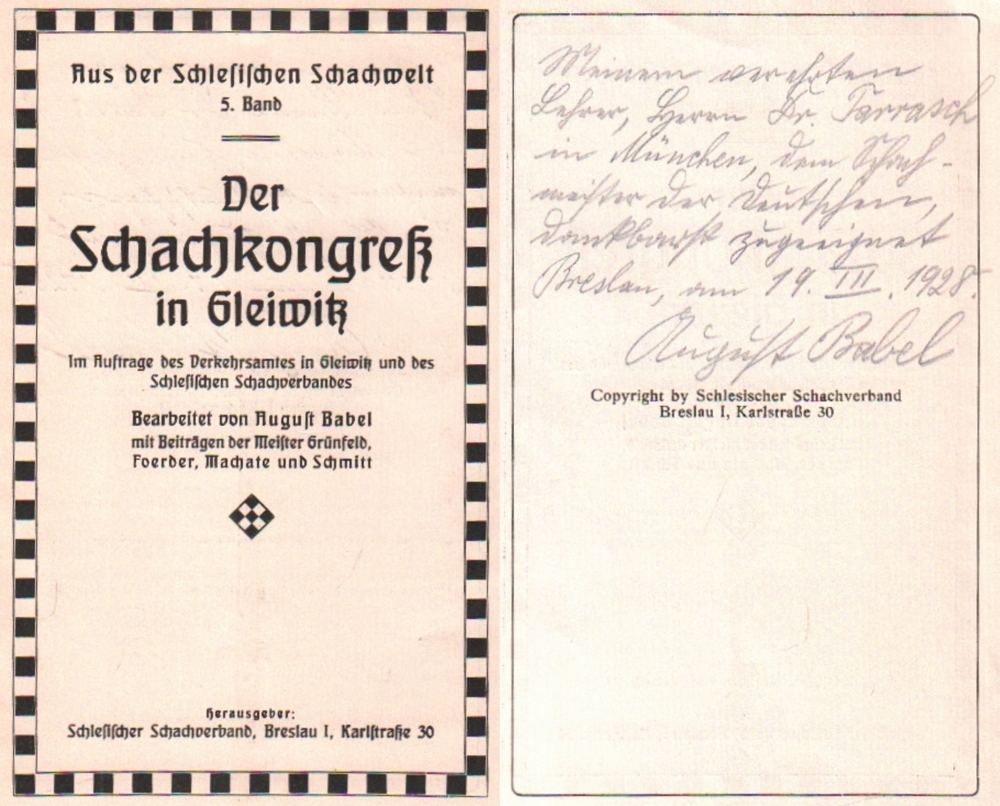 Aus der Schlesischen Schachwelt
5. Band
Der
Schachkongreß
in Gleiwitz
Im Auftrage des Verkehrsamtes in Gleiwitz und des
Schlesischen Schachverbandes
Bearbeitet von August Babel
mit Beiträgen der Meister Grünfeld,
Foerder, Machate und Schmitt
Herausgeber:
Schlesischer Schachverband, Breslau I, Karlstraße 30
Meinem verehrten
Lehrer, Herrn Dr. Tarrasch
in München, dem Schach-
meister der Deutschen,
dankbarst zugeeignet
Breslau, am 19. III. 1928.
August Babel
Copyright by Schlesischer Schachverband
Breslau I, Karlstraße 30